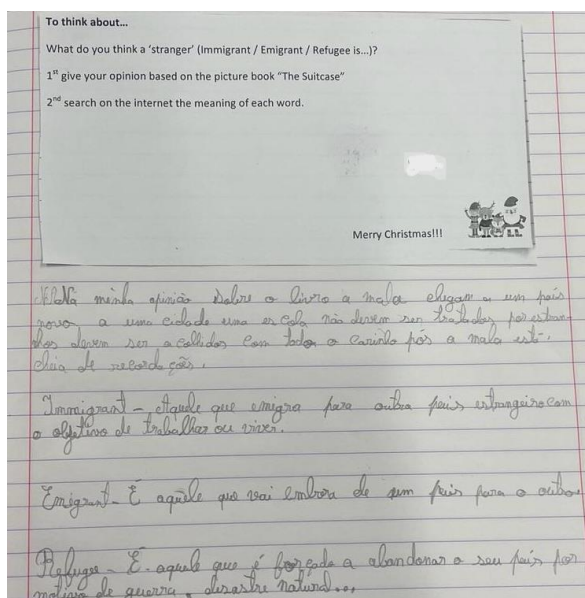 To think about...
What do you think a ‘stranger’ (Immigrant / Emigrant / Refugee is...)?
1st give your opinion based on the picture book “The Suitcase”
2nd search on the internet the meaning of each word.
Merry Christmas!!!
Na minha opinião sobre o livro a mala chegam a um país
novo a uma cidade uma escola não devem ser tratados por estran
hos devem ser acollidos com todo o carinho pós a mala está
cheia de recordações.
Immigrant - Aquele que emigra para outra país estrangeiro com
o objetivo de trabalhar ou viver.
Emigrant - É aquele que vai embora de um país para o outro
Refugee - É aquele que é forçado a abandonar o seu país por
motivo de guerra, desastre natural...